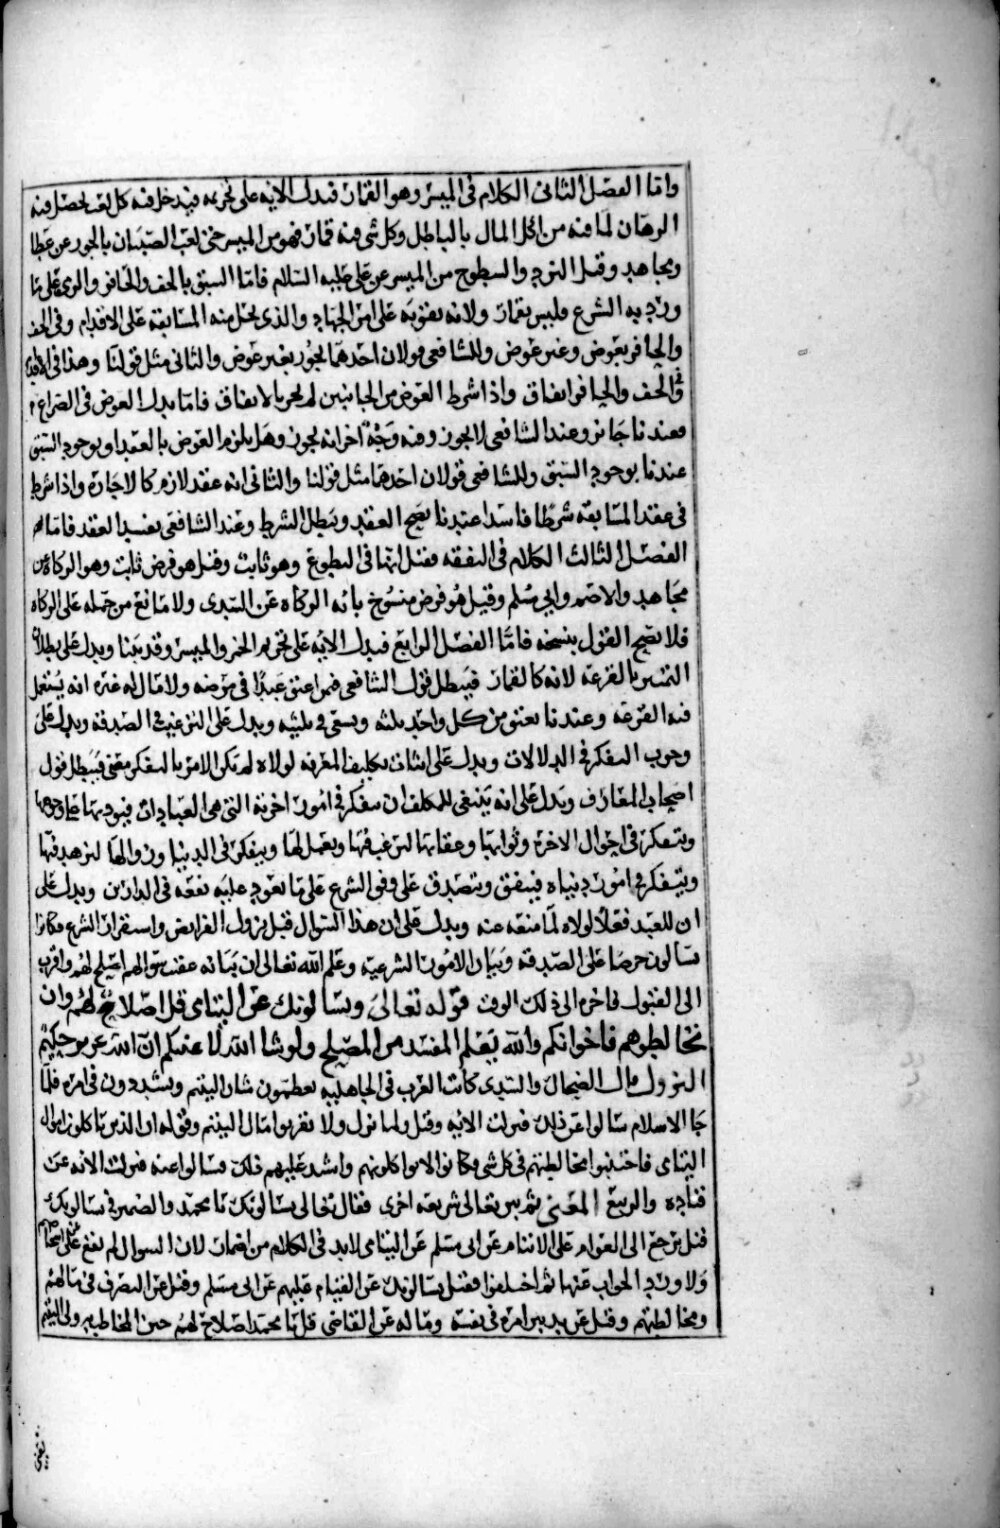 واما الفصل الثانى الكلام فى الميسر وهو القمار فتدل الايه على تحريمه فيدخل فيه كل لعب يحصل فيه
الرهان لما فيه من اكل المال بالباطل وكل شى فيه قمار فهو من الميسر حتى لعب الصبيان بالجوز عن عطا
ومجاهد وقيل النرد والشطرنج من الميسر عن على عليه السلام فاما السبق بالخف والحافر والرمى على ما
ورد به الشرع فليس بقمار ولانه تقويه على امر الجهاد والذى يحل منه المسابقه على الاقدام وفى الخف
والحافر بعوض وغير عوض وللشافعى قولان احدهما يجوز بغير عوض والثانى مثل قولنا وهذا فى الاقدام
وفى الخف والحافر اتفاق واذا شرط العوض من الجانبين لم يجز بالاتفاق فاما بذل العوض فى الصراع
فعندنا جائز وعند الشافعى لا يجوز وفيه وجه اخر انه يجوز وهل يلزم العوض بالعقد او بوجود السبق
عندنا بوجود السبق وللشافعى قولان احدهما مثل قولنا والثانى انه عقد لازم كالاجارة واذا شرط
فى عقد المسابقه شرطا فاسدا عندنا يصح العقد ويبطل الشرط وعند الشافعى يفسد العقد فاما
الفصل الثالث الكلام فى النفقه فقيل انها فى التطوع وهو ثابت وقيل هو فرض ثابت وهو الزكاة عن
مجاهد والاصم وابى مسلم وقيل هو فرض منسوخ بايه الزكاه عن السدى ولا مانع من حمله على الزكاه
فلا يصح القول بنسخه فاما الفصل الرابع فتدل الايه على تحريم الخمر والميسر وقد بينا ويدل على بطلان
التمييز بالقرعه لانه كالقمار فيبطل قول الشافعى فيمن اعتق عبيدا فى مرضه ولا مال له غيره انه يستعمل
فيه القرعه وعندنا يعتق من كل واحد ثلثه ويسعى فى ثلثيه ويدل على الترغيب فى الصدقه ويدل على
وجوب التفكر فى الدلالات ويدل على اثبات تكليف المعرفه لولاه لم يكن الامر بالتفكر معنى فيبطل قول
اصحاب المعارف ويدل على انه ينبغى للمكلف ان يتفكر فى امور اخرته التى هى العبادات فيوديها على وجهها
ويتفكر فى احوال الاخرة وثوابها وعقابها ليرغب فيها ويعمل لها ويتفكر فى الدنيا وزوالها ليزهد فيها
ويتفكر فى امور دنياه فينفق ويتصدق على وفق الشرع على ما يعود عليه نفعه فى الدارين ويدل على
ان للعبد فعلا لولاه لما منعه عنه ويدل على ان هذا السوال قبل نزول الفرايض واستقرار الشرع فكانوا
يسالون حرصا على الصدقه وبيان الامور الشرعيه وعلم الله تعالى ان بيانه عقيب سوالهم اصلح لهم واقرب
الى القبول فاخره الى ذلك الوقت قوله تعالى ويسالونك عن اليتامى قل اصلاح لهم وان
تخالطوهم فاخوانكم والله يعلم المفسد من المصلح ولو شا الله لا عنتكم ان الله عزيز حكيم
النزول قال الضحاك والسدى كانت العرب فى الجاهليه يعظمون شان اليتيم ويشددون فى امره فلما
جا الاسلام سالوا عن ذلك فنزلت الايه وقيل ولما نزل ولا تقربوا مال اليتيم وقوله ان الذين ياكلون اموال
اليتامى فاجتنبوا مخالطتهم فى كل شى وكانوا لا يواكلونهم واشتد عليهم ذلك فسالوا عنه فنزلت الايه عن
قتاده والربيع المعنى ثم بين تعالى شريعه اخرى فقال تعالى يسالونك يا محمد والضمير فى يسالونك
قيل يرجع الى القوام على الايتام عن ابى مسلم عن اليتامى لابد فى الكلام من اضمار لان السوال لم يقع عن اشخاصهم
ولا ورد الجواب عنها ثم اختلفوا فقيل يسالونك عن القيام عليهم عن ابى مسلم وقيل عن التصرف فى مالهم
ومخالطتهم وقيل عن تدبير امره فى نفسه وماله عن القاضى قل يا محمد اصلاح لهم حين المخاطبه ولى اليتيم